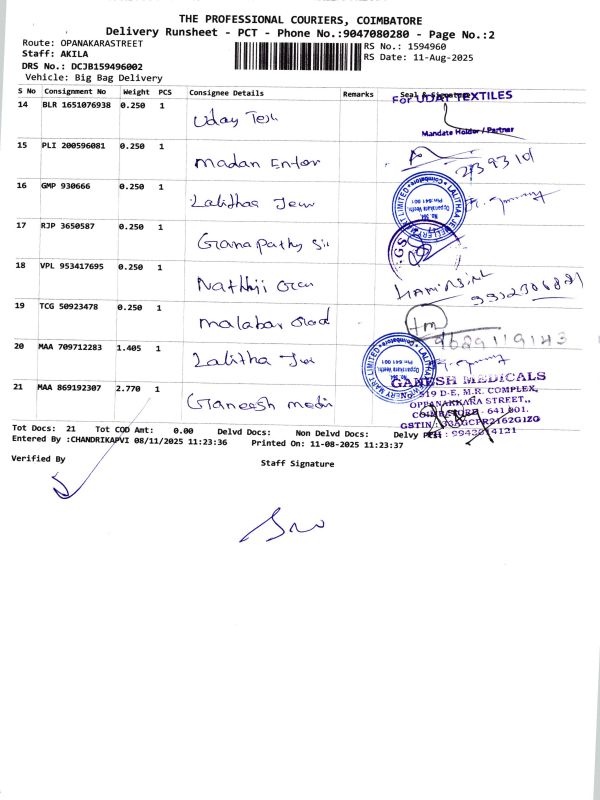 THE PROFESSIONAL COURIERS, COIMBATORE
Delivery Runsheet - PCT - Phone No.:9047080280 - Page No.:2
Route: OPANAKARASTREET
Staff: AKILA
DRS No.: DCJB159496002
Vehicle: Big Bag Delivery
RS No.: 1594960
RS Date: 11-Aug-2025
S No Consignment No Weight PCS Consignee Details Remarks Seal & Signature
For UDAY TEXTILES
14 BLR 1651076938 0.250 1 Uday Tex
Mandate Holder / Partner
15 PLI 200596081 0.250 1 Madan Enter
16 GMP 930666 0.250 1 Lalithaa Jew
17 RJP 3650587 0.250 1 Ganapathy Sil
18 VPL 953417695 0.250 1 Nathiji Orn
19 TCG 50923478 0.250 1 Malabar Gold
9629119143
20 MAA 709712283 1.405 1 Lalitha Jew
21 MAA 869192307 2.770 1 Ganeesh medi
GANESH MEDICALS
No: 519 D-E, M.R. COMPLEX,
OPPANAKKARA STREET,,
COIMBATORE - 641 001.
GSTIN : 33AGCPR2162G1ZG
PH : 9943614121
Tot Docs: 21 Tot COD Amt: 0.00 Delvd Docs: Non Delvd Docs: Delvy
Entered By :CHANDRIKAPVI 08/11/2025 11:23:36 Printed On: 11-08-2025 11:23:37
Verified By
Staff Signature